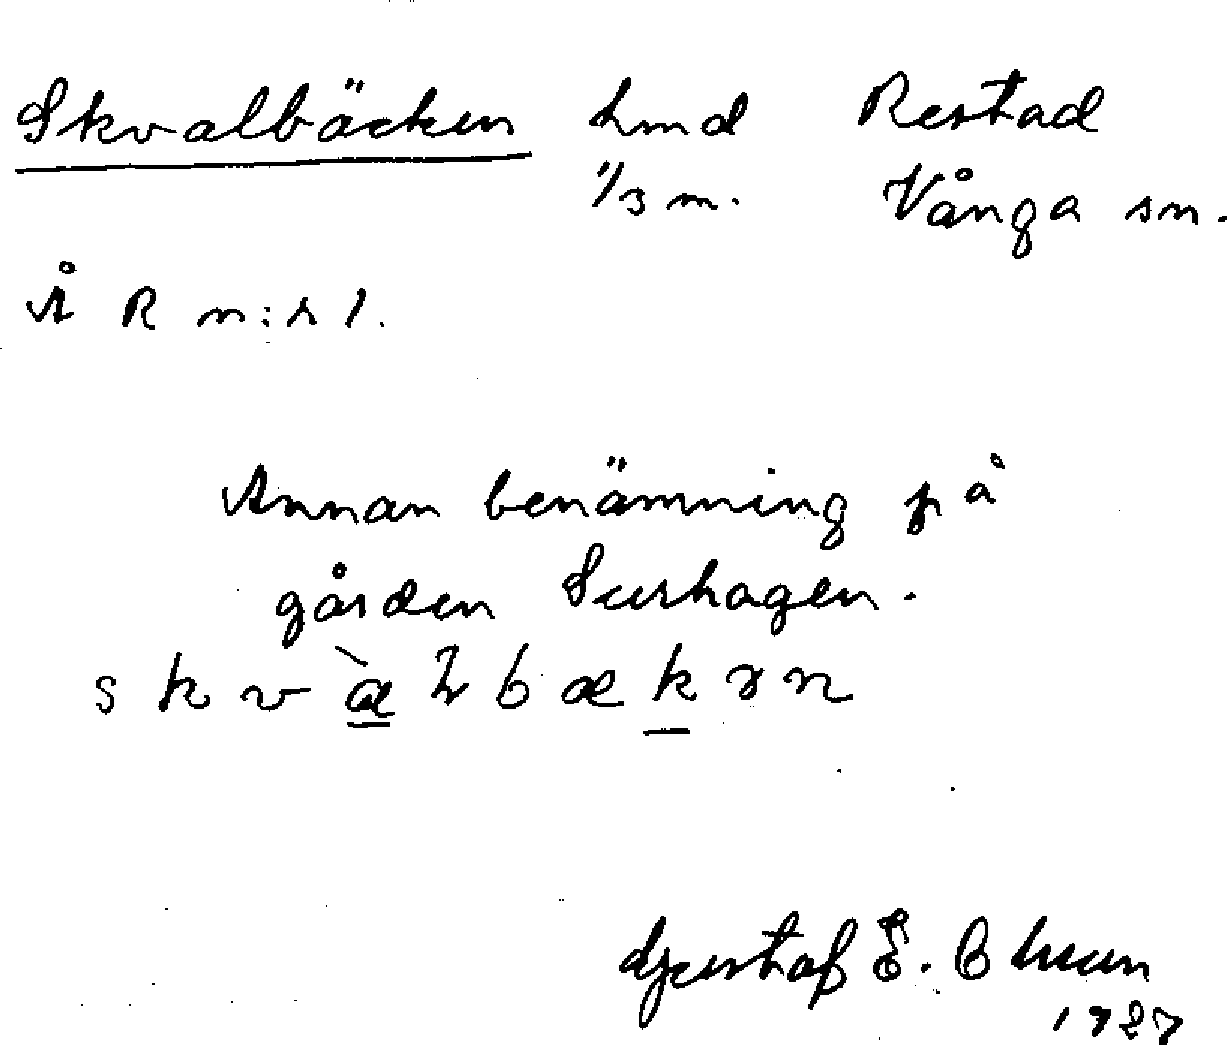 Skvalbäcken hmd Restad
1/3 m. Vånga sn.
Å R n:r 1.
Annan benämning på
gården Surhagen.
s k v æ̀ l b æ k ə n
Gustaf E.
1927